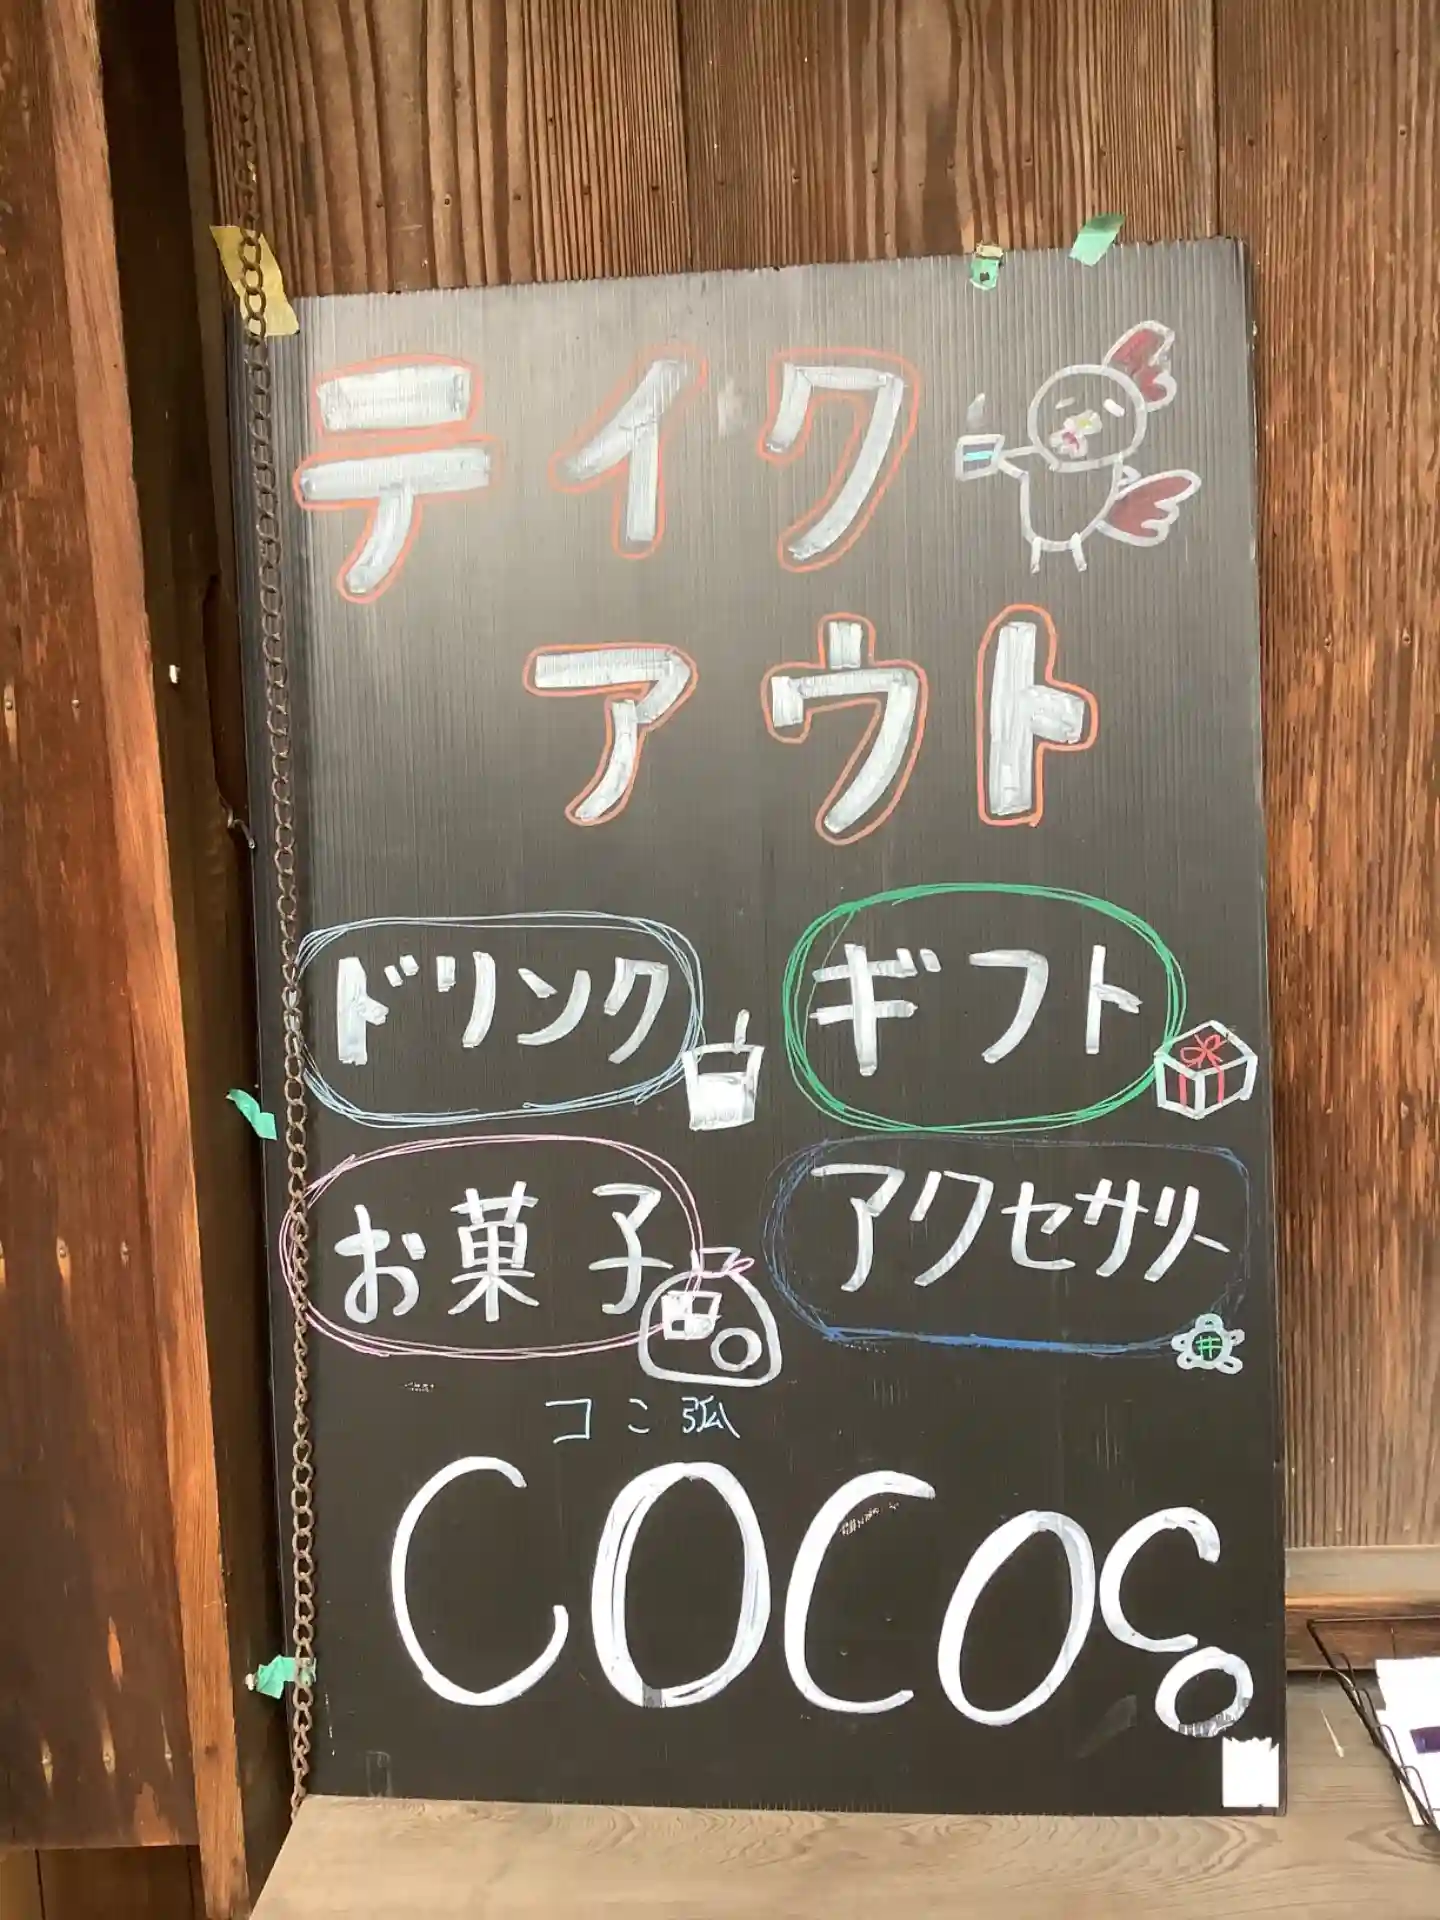 テイク
アウト
ドリンク ギフト
お菓子 アクセサリー
ココ弧
COCOCO